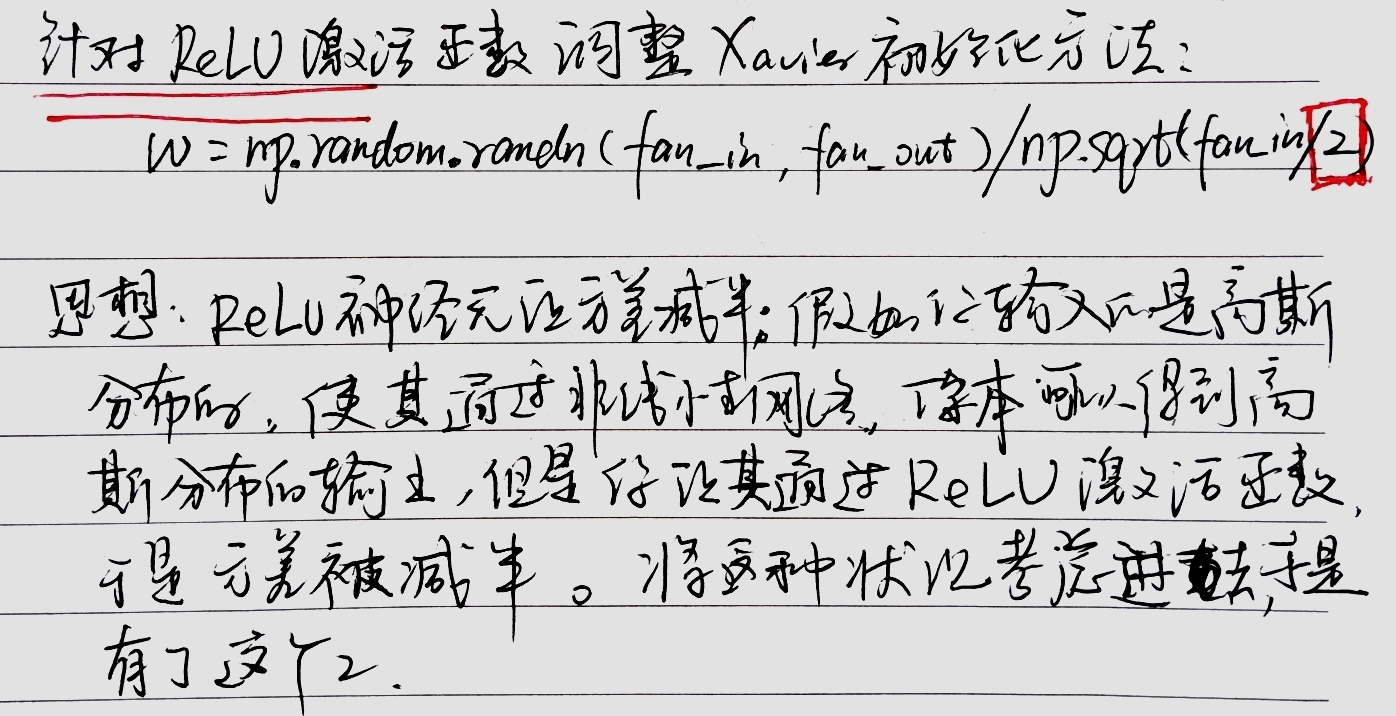 针对ReLU激活函数调整Xavier初始化方法:
W = np.random.randn(fan_in, fan_out)/np.sqrt(fan_in/2)
思想:ReLU神经元让方差减半;假如你让输入的是高斯
分布的,使其通过非线性网络,原本可以得到高
斯分布的输出,但是你让其通过ReLU激活函数,
于是方差被减半。将这种状况考虑进去,于是
有了这个2.